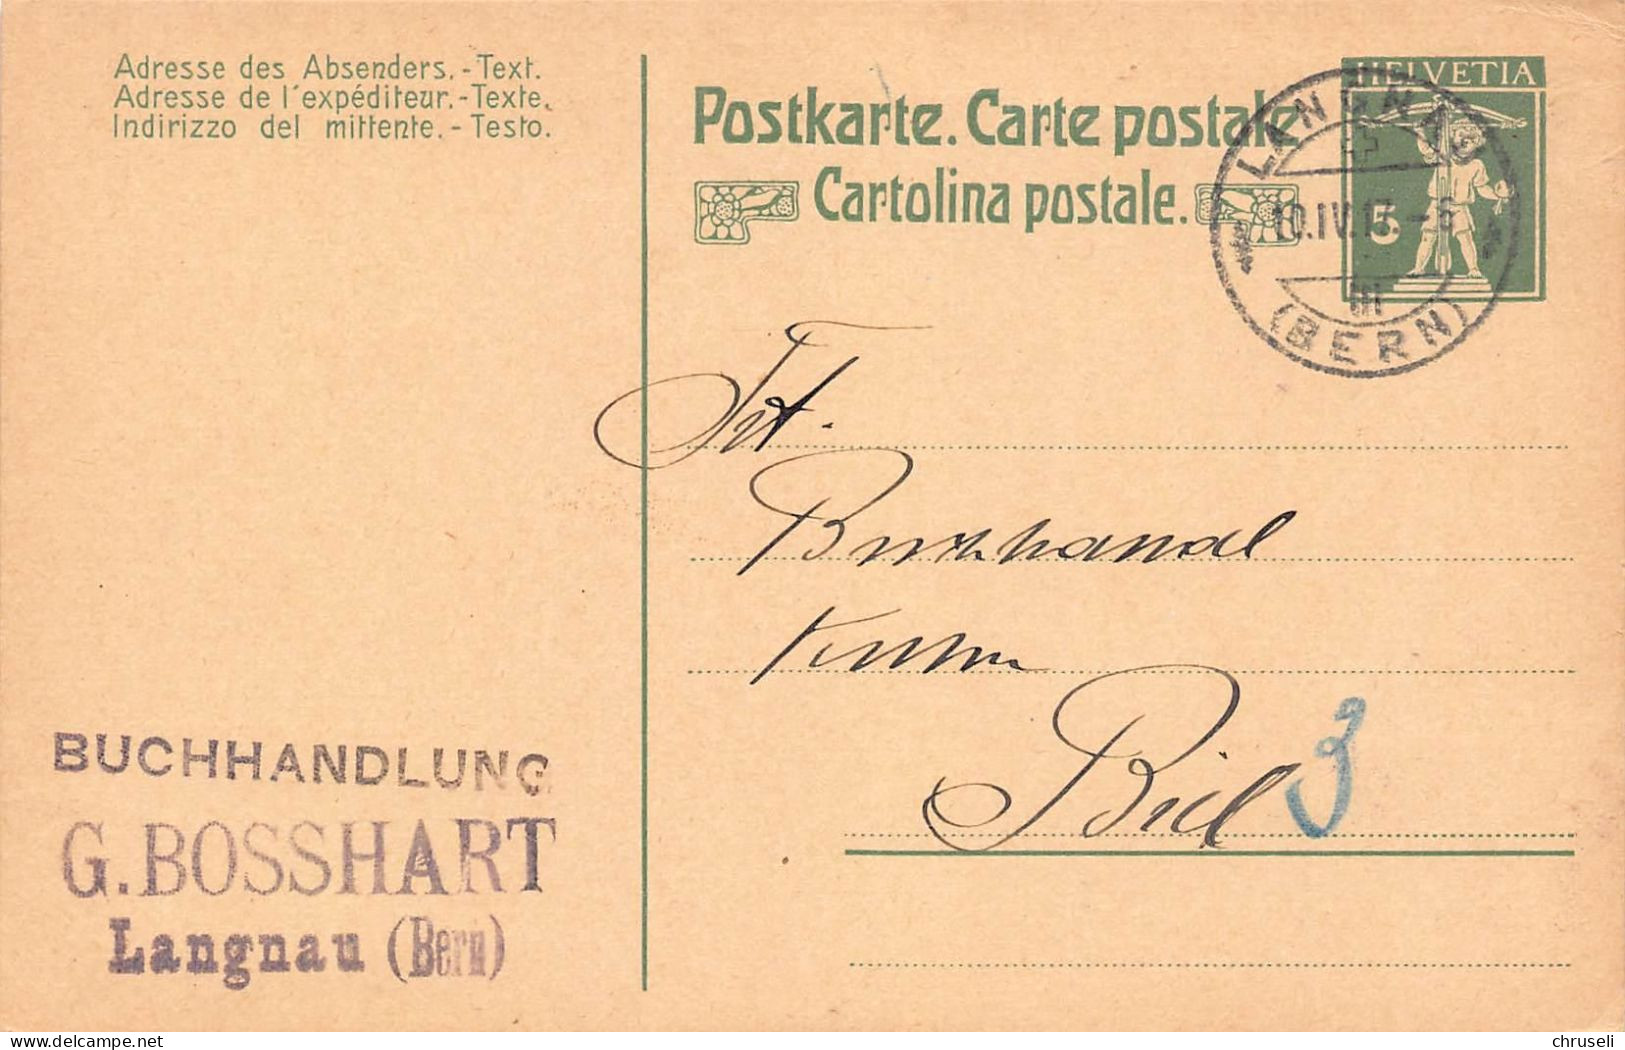 Adresse des Absenders. - Text.
Adresse de l'expéditeur. - Texte.
Indirizzo del mittente. - Testo.
Postkarte. Carte postale
Cartolina postale.
HELVETIA
5
LANGNAU
10.IV.17.-6
III
(BERN)
Tit.
Buchhandl
Kuhn
Biel
3
BUCHHANDLUNG
G. BOSSHART
Langnau (Bern)
delcampe.net
chruseli